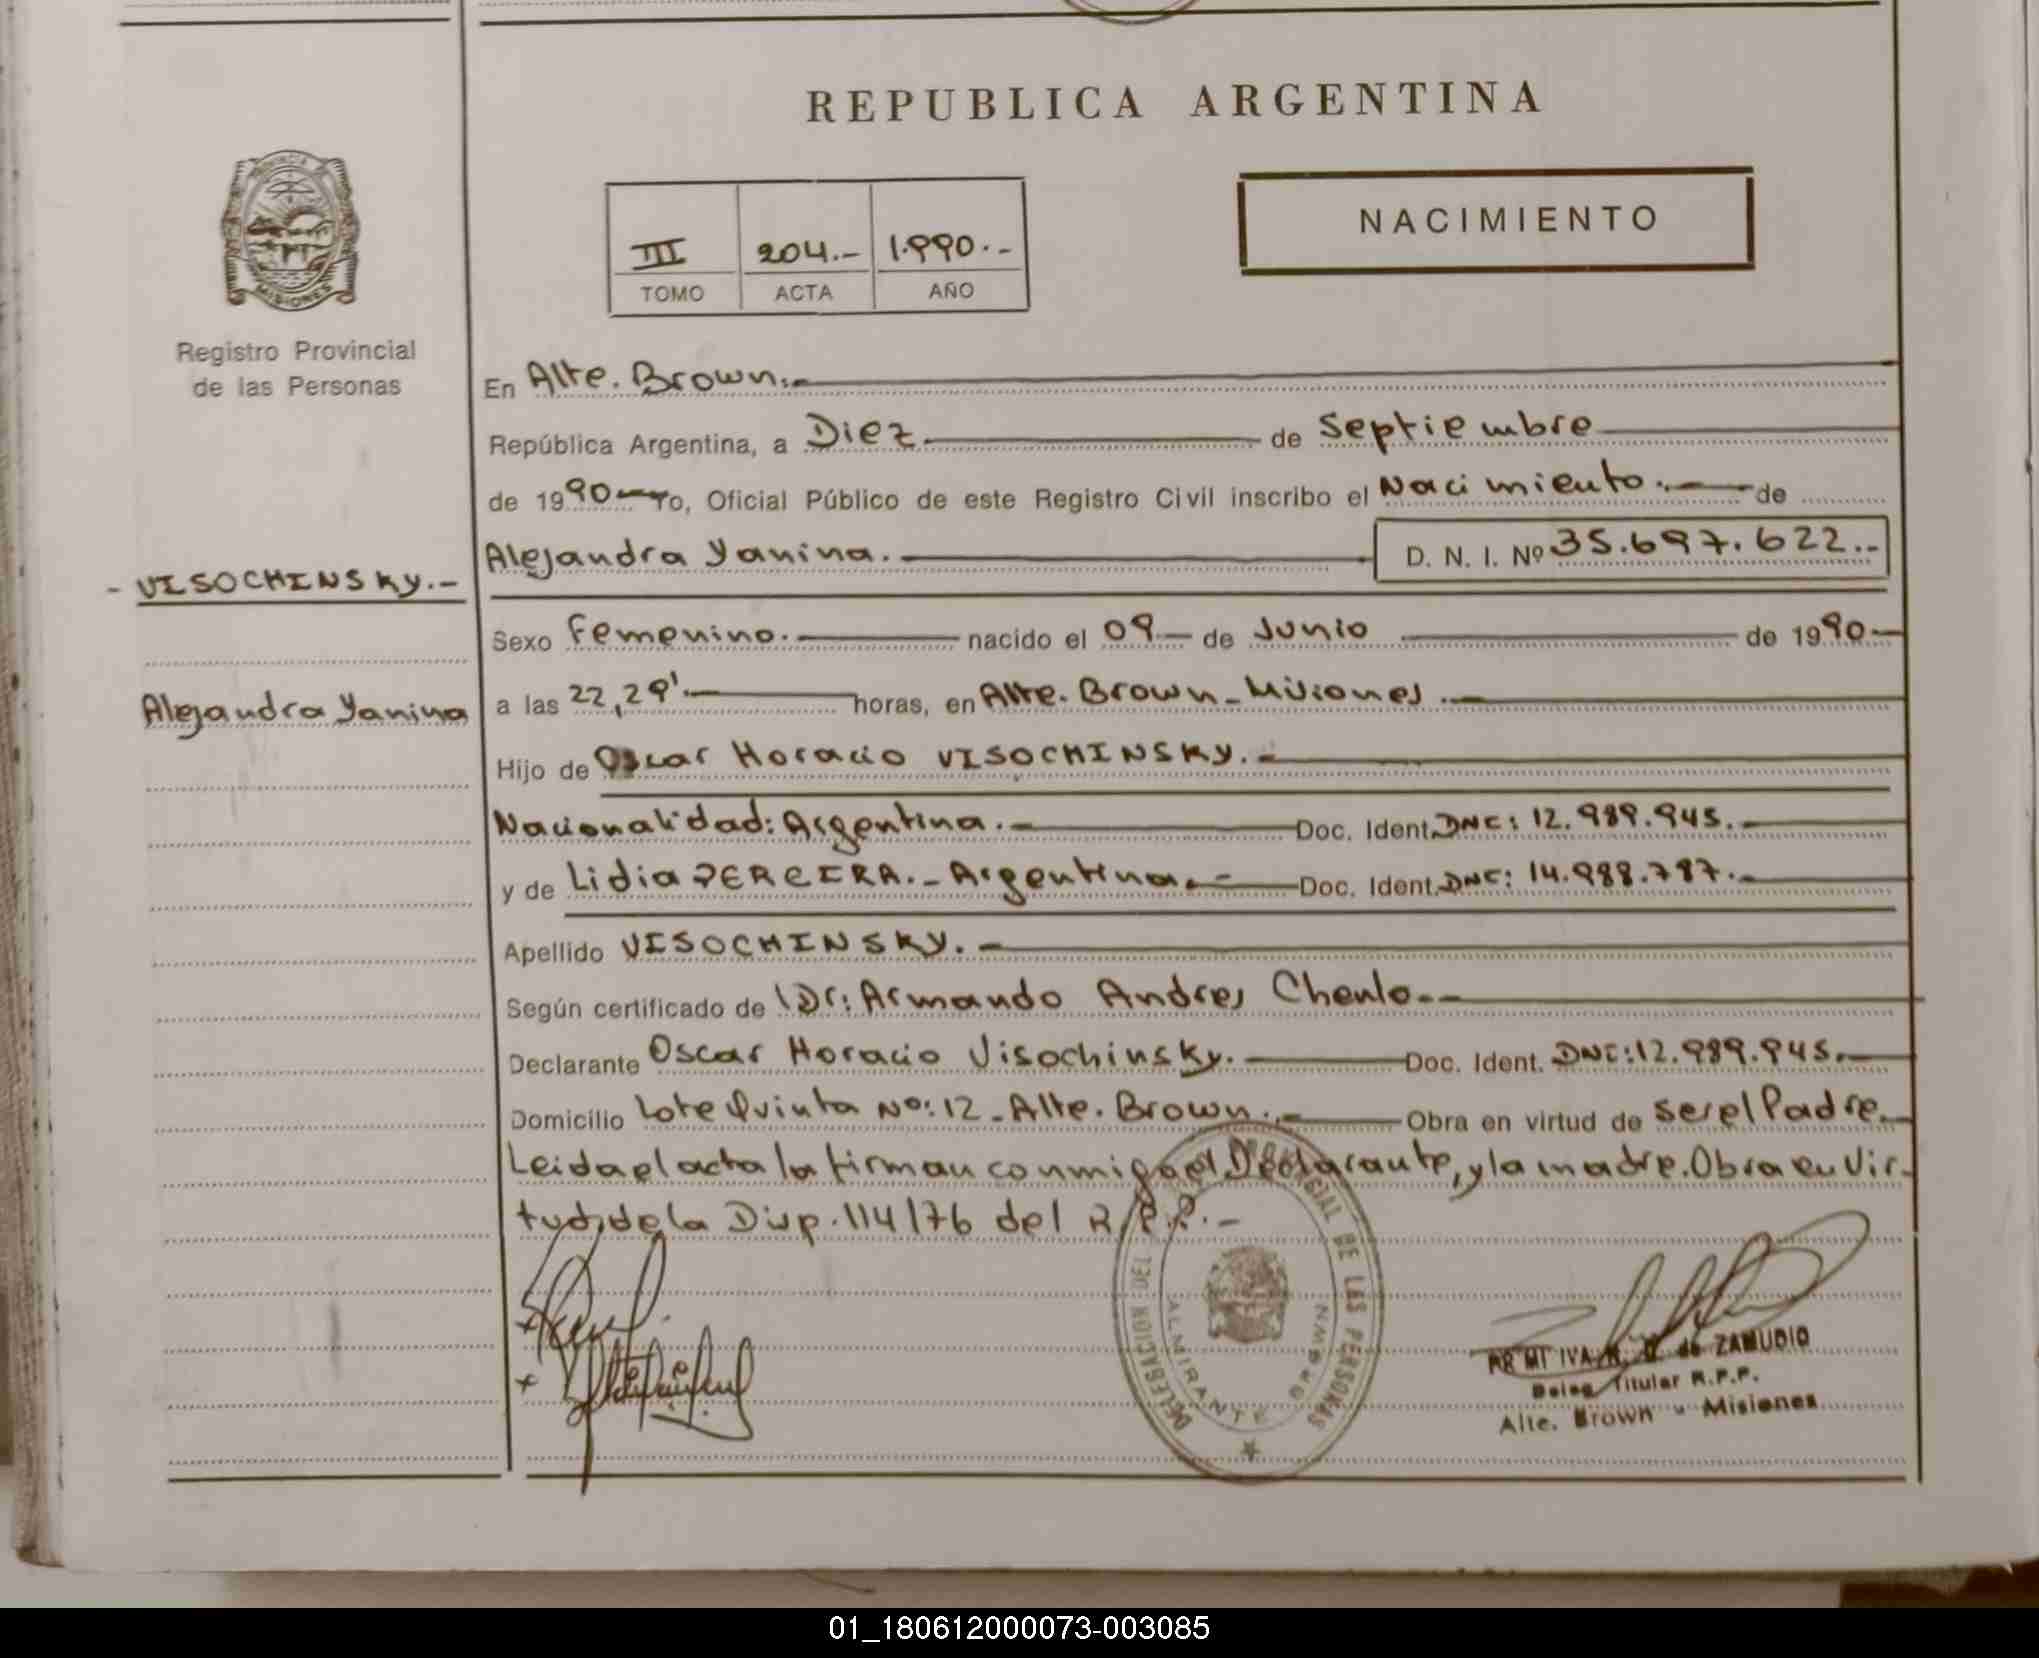 REPUBLICA ARGENTINA
PROVINCIA
MISIONES
Registro Provincial
de las Personas
III 204.- 1.990.-
TOMO ACTA AÑO
NACIMIENTO
En Alte. Brown.-
República Argentina, a Diez de Septiembre
de 1990 Yo, Oficial Público de este Registro Civil inscribo el Nacimiento. de
- VISOCHINSKY.-
Alejandra Yanina
Alejandra Yanina. D. N. I. Nº 35.697.622.-
Sexo Femenino. nacido el 09 de Junio de 1990
a las 22,29' horas, en Alte. Brown - Misiones.
Hijo de Oscar Horacio VISOCHINSKY.-
Nacionalidad: Argentina.- Doc. Ident. DNI: 12.989.945.
y de Lidia PEREIRA.- Argentina.- Doc. Ident. DNI: 14.988.787.
Apellido VISOCHINSKY.-
Según certificado de Dr: Armando Andres Chenlo.-
Declarante Oscar Horacio Visochinsky. Doc. Ident. DNI: 12.989.945.
Domicilio Lote Quinta Nº: 12 - Alte. Brown.- Obra en virtud de ser el Padre.
Leida el acta la firman conmigo el Declarante, y la madre. Obra en vir-
tud, de la Disp. 114/76 del R.P.P.-
DELEGACION DEL PROVINCIAL DE LAS PERSONAS
ALMIRANTE BROWN
de ZAMUDIO
Deleg. Titular R.P.P.
Alte. Brown - Misiones
01_180612000073-003085